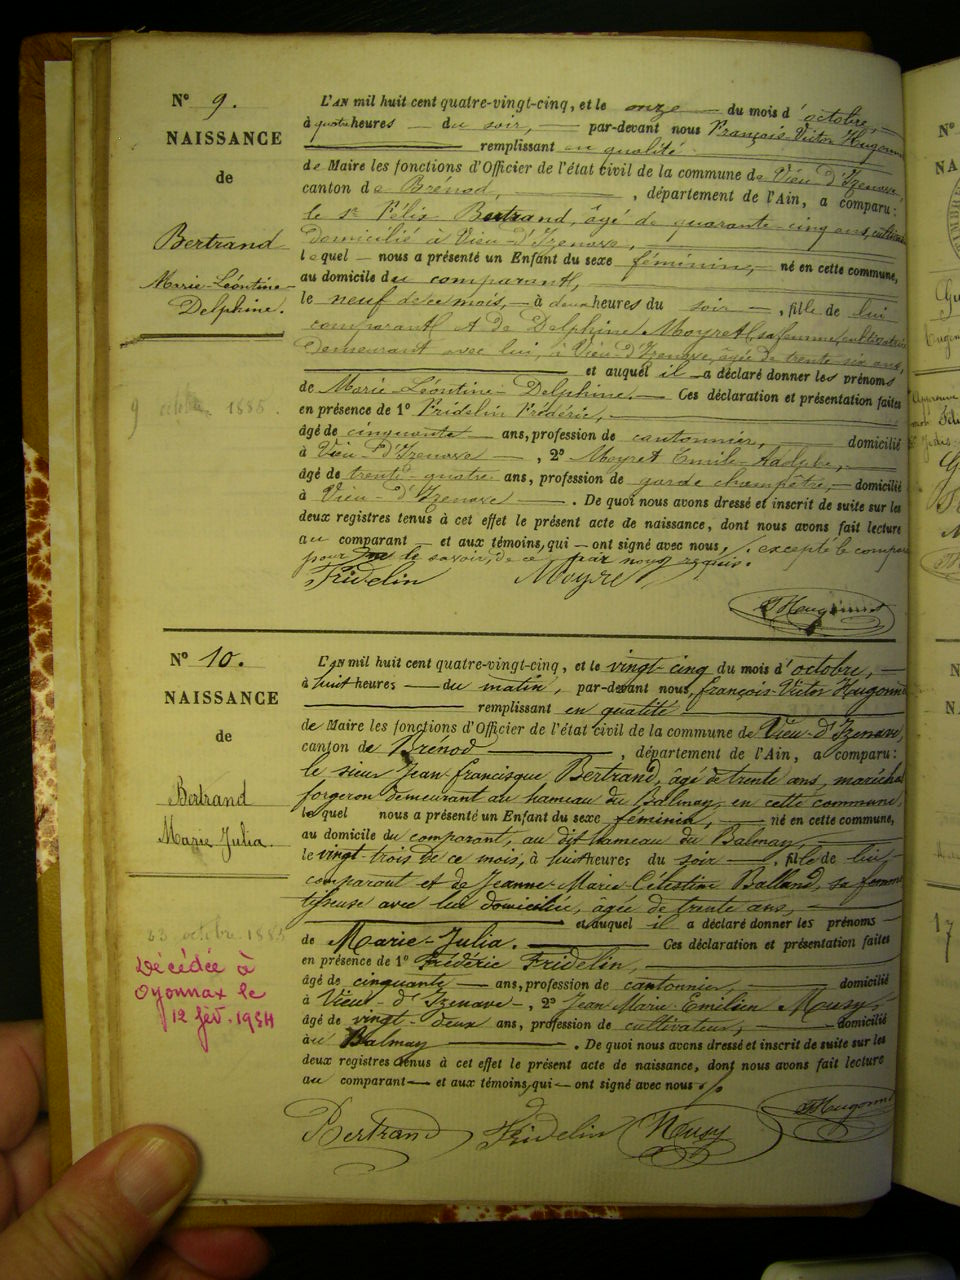 N° 9.
NAISSANCE
de
Bertrand
Marie-Léontine-
Delphine.
9 octobre 1885.
L'AN mil huit cent quatre-vingt-cinq, et le onze du mois d'octobre,
à quatre heures du soir, par-devant nous François-Victor Hugonnet
remplissant en qualité
de Maire les fonctions d'Officier de l'état civil de la commune de Vieu-d'Izenave,
canton de Brénod, département de l'Ain, a comparu:
le sr Félix Bertrand, âgé de quarante-cinq ans, cultivateur
domicilié à Vieu-d'Izenave,
lequel nous a présenté un Enfant du sexe féminin, né en cette commune,
au domicile du comparant,
le neuf de ce mois, à deux heures du soir, fille de lui
comparant et de Delphine Moyret, sa femme, cultivatrice
demeurant avec lui, à Vieu-d'Izenave, âgée de trente-six ans,
et auquel il a déclaré donner les prénoms
de Marie-Léontine-Delphine. Ces déclaration et présentation faites
en présence de 1° Fridelin Frédéric,
âgé de cinquante ans, profession de cantonnier, domicilié
à Vieu-d'Izenave, 2° Moyret Emile-Adolphe,
âgé de trente-quatre ans, profession de garde champêtre, domicilié
à Vieu-d'Izenave. De quoi nous avons dressé et inscrit de suite sur les
deux registres tenus à cet effet le présent acte de naissance, dont nous avons fait lecture
au comparant et aux témoins, qui ont signé avec nous, excepté le compar
pour ne le savoir, de ce par nous requis.
Fridelin Moyret
Hugonnet
N° 10.
NAISSANCE
de
Bertrand
Marie Julia.
23 octobre 1885
Décédée à
Oyonnax le
12 fév. 1954
L'AN mil huit cent quatre-vingt-cinq, et le vingt-cinq du mois d'octobre,
à huit heures du matin, par-devant nous, François-Victor Hugonnet
remplissant en qualité
de Maire les fonctions d'Officier de l'état civil de la commune de Vieu-d'Izenave,
canton de Brénod, département de l'Ain, a comparu:
le sieur Jean-Francisque Bertrand, âgé de trente ans, maréchal
forgeron demeurant au hameau du Balmay, en cette commune,
lequel nous a présenté un Enfant du sexe féminin, né en cette commune,
au domicile du comparant, au dit hameau du Balmay,
le vingt-trois de ce mois, à huit heures du soir, fille de lui
comparant et de Jeanne-Marie-Célestine Balland, sa femme
tisseuse avec lui domiciliée, âgée de trente ans,
et auquel il a déclaré donner les prénoms
de Marie-Julia. Ces déclaration et présentation faites
en présence de 1° Frédéric Fridelin,
âgé de cinquante ans, profession de cantonnier, domicilié
à Vieu-d'Izenave, 2° Jean Marie Emilien Musy,
âgé de vingt-deux ans, profession de cultivateur, domicilié
au Balmay. De quoi nous avons dressé et inscrit de suite sur les
deux registres tenus à cet effet le présent acte de naissance, dont nous avons fait lecture
au comparant et aux témoins, qui ont signé avec nous
Bertrand Fridelin Musy Hugonnet